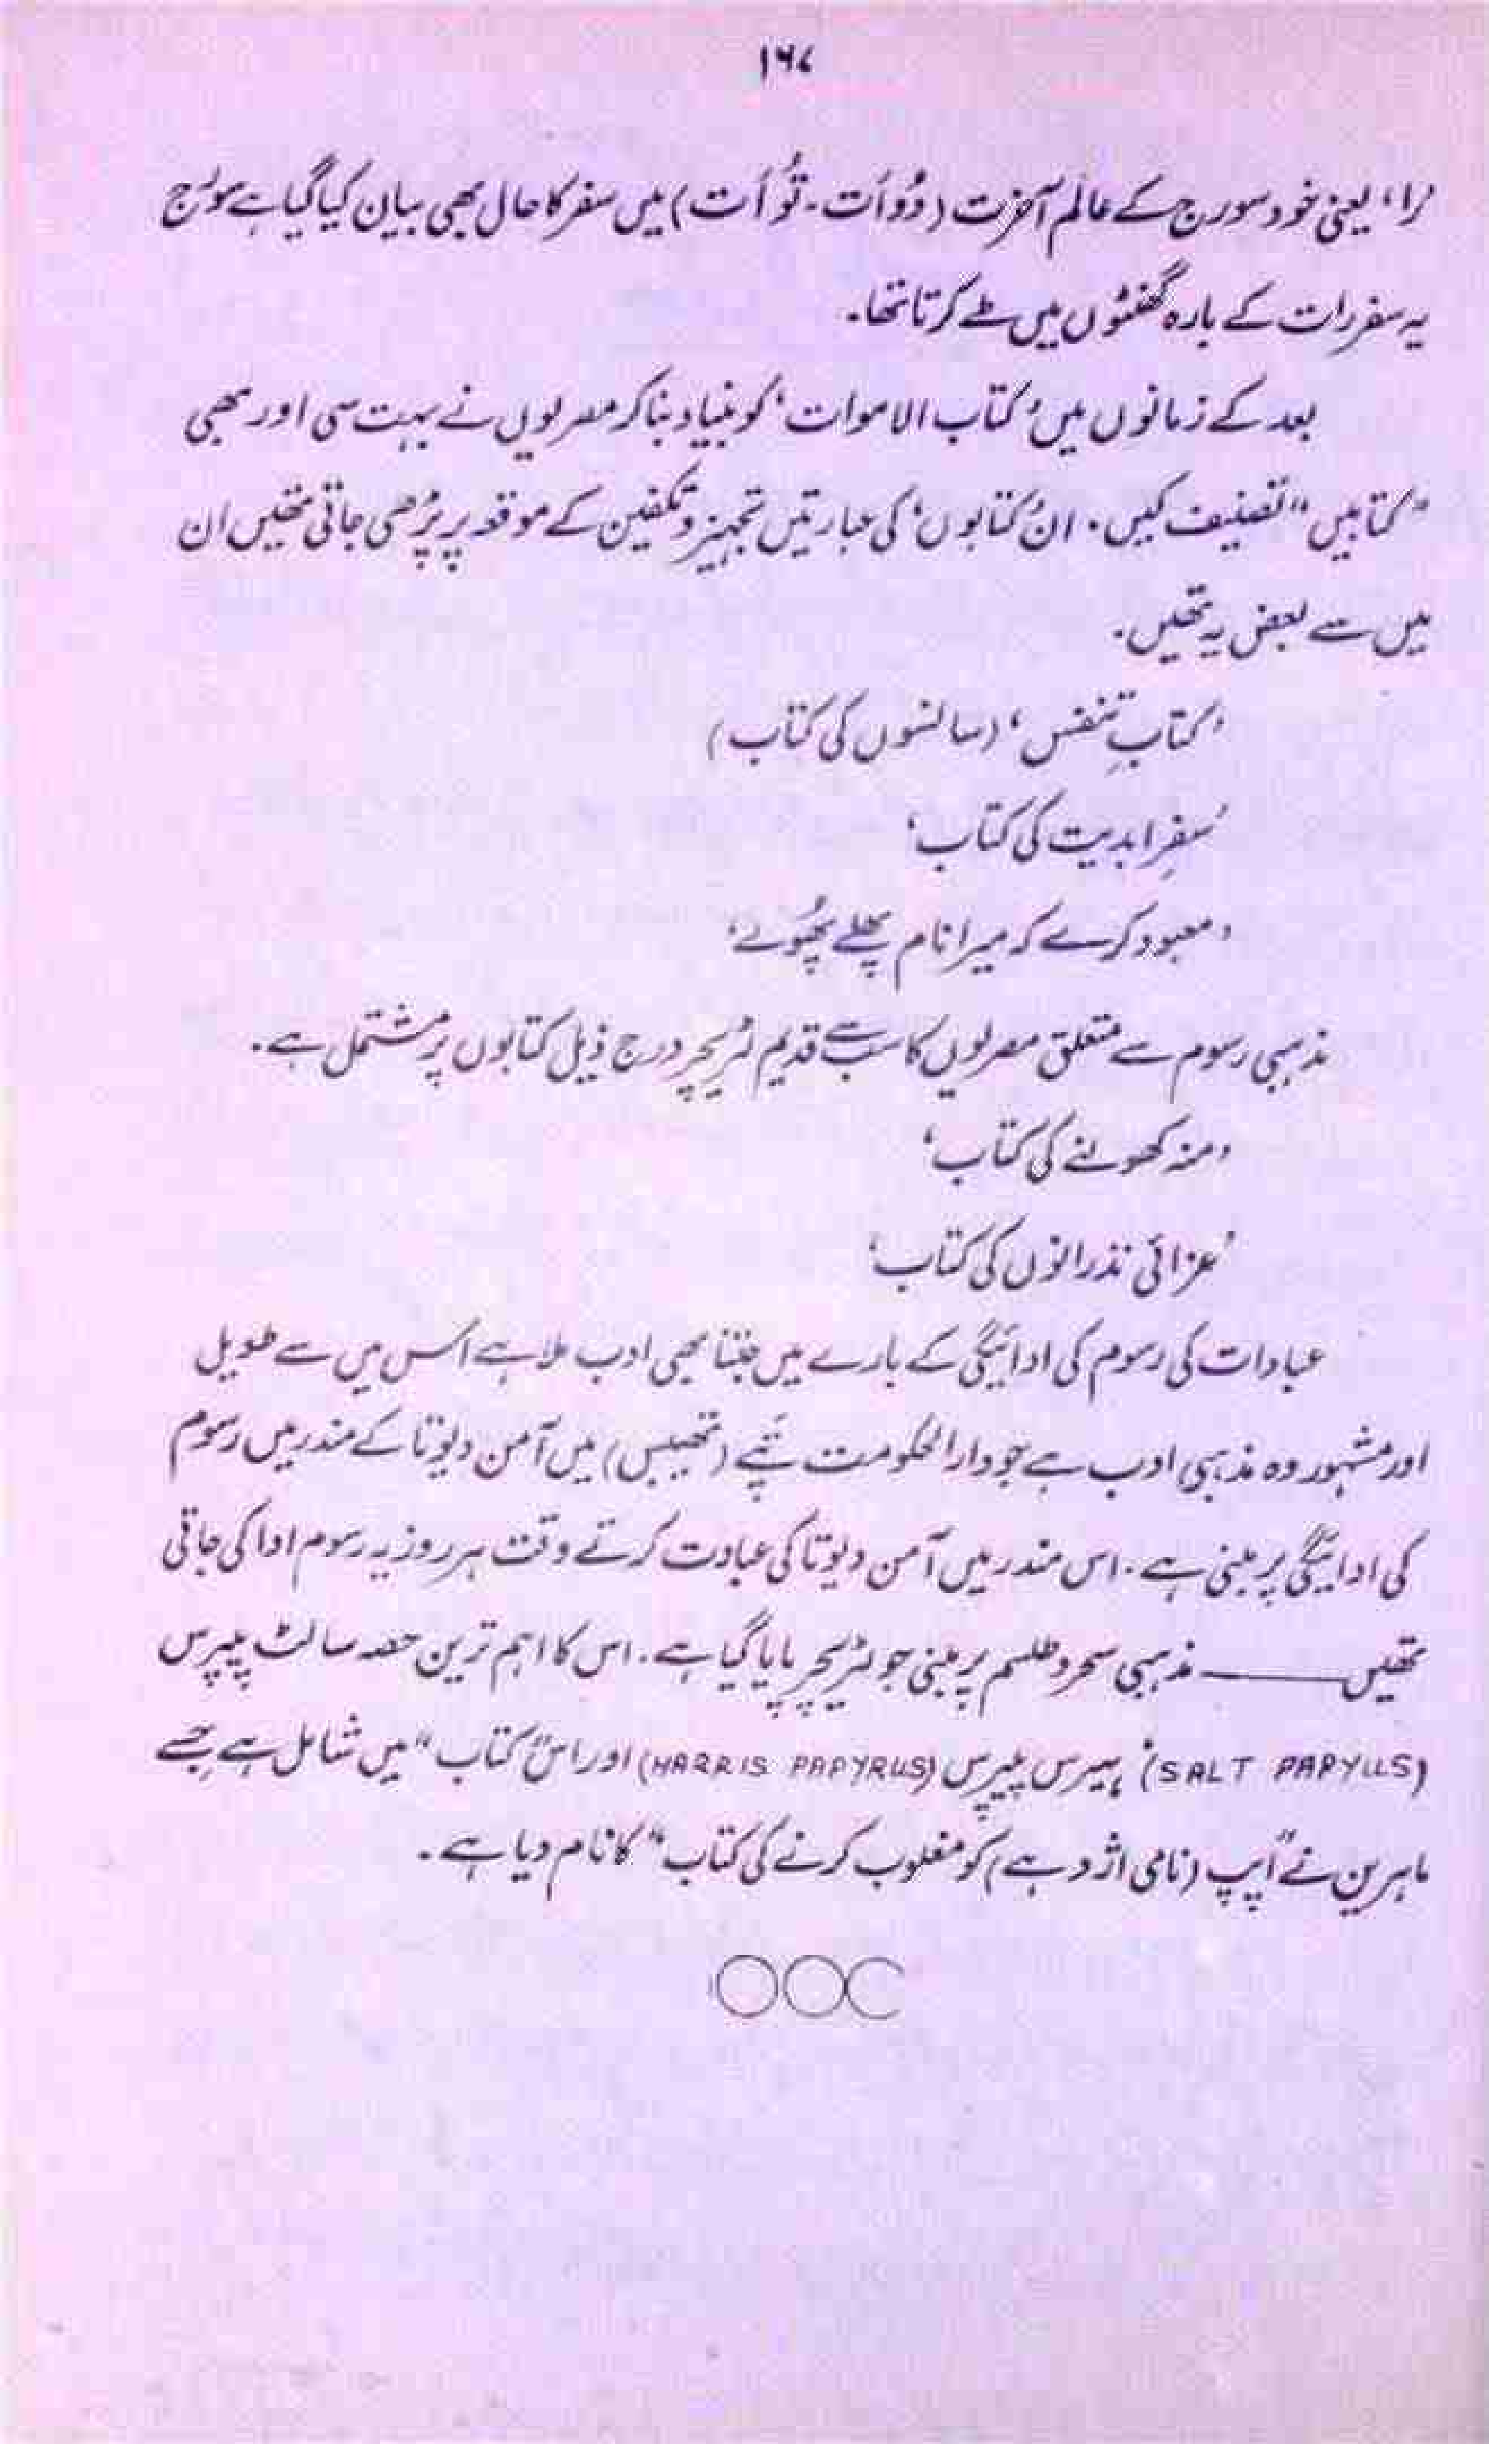 ۱۶۷
’را‘ یعنی خود سورج کے عالم آخرت (دُواَت۔ تُواَت) میں سفر کا حال بھی بیان کیا گیا ہے سورج
یہ سفر رات کے بارہ گھنٹوں میں طے کرتا تھا۔
بعد کے زمانوں میں ’کتاب الاموات‘ کو بنیاد بنا کر مصریوں نے بہت سی اور بھی
”کتابیں“ تصنیف کیں۔ ان ’کتابوں‘ کی عبارتیں تجہیز و تکفین کے موقعہ پر پڑھی جاتی تھیں ان
میں سے بعض یہ تھیں۔
’کتابِ تنفس‘ (سانسوں کی کتاب)
’سفرِ ابدیت کی کتاب‘
’معبود کرے کہ میرا نام پھلے پھُولے‘
مذہبی رسوم سے متعلق مصریوں کا سب سے قدیم لٹریچر درج ذیل کتابوں پر مشتمل ہے۔
’منہ کھولنے کی کتاب‘
’عزائی نذرانوں کی کتاب‘
عبادات کی رسوم کی ادائیگی کے بارے میں جتنا بھی ادب ملا ہے اس میں سے طویل
اور مشہور وہ مذہبی ادب ہے جو دارالحکومت تپے (تھیبیس) میں آمن دیوتا کے مندر میں رسوم
کی ادائیگی پر مبنی ہے۔ اس مندر میں آمن دیوتا کی عبادت کرتے وقت ہر روز یہ رسوم ادا کی جاتی
تھیں ـــــــ مذہبی سحر و طلسم پر مبنی جو لٹریچر پایا گیا ہے۔ اس کا اہم ترین حصہ سالٹ پیپرس
(SALT PAPYUS)، ہیرس پیپرس (HARRIS PAPYRUS) اور اس ”کتاب“ میں شامل ہے جسے
ماہرین نے ”اَپپ (نامی اژدہے) کو مغلوب کرنے کی کتاب“ کا نام دیا ہے۔